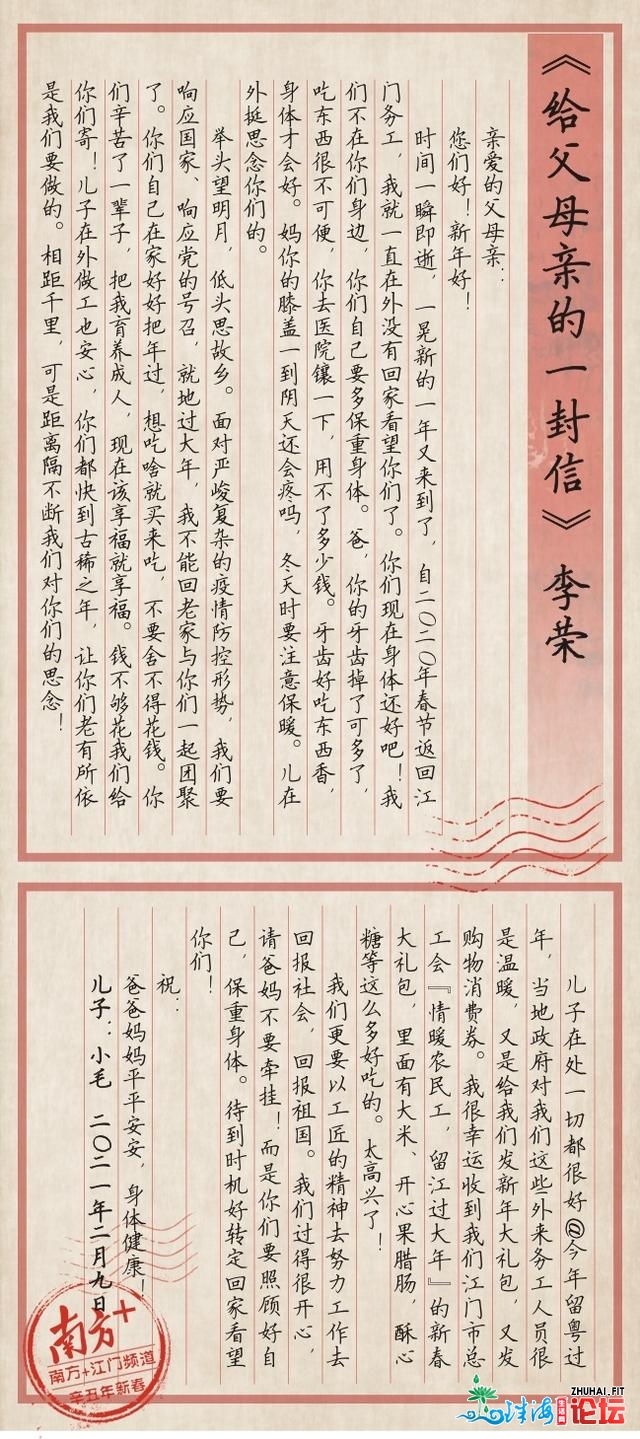 《给父母亲的一封信》 李荣
亲爱的父母亲：
您们好！新年好！
时间一瞬即逝，一晃新的一年又来到了，自二〇二〇年春节返回江
门务工，我就一直在外没有回家看望你们了。你们现在身体还好吧！我
们不在你们身边，你们自己要多保重身体。爸，你的牙齿掉了可多了，
吃东西很不可便，你去医院镶一下，用不了多少钱。牙齿好吃东西香，
身体才会好。妈你的膝盖一到阴天还会疼吗，冬天时要注意保暖。儿在
外挺思念你们的。
举头望明月，低头思故乡。面对严峻复杂的疫情防控形势，我们要
响应国家、响应党的号召，就地过大年，我不能回老家与你们一起团聚
了。你们自己在家好好把年过，想吃啥就买来吃，不要舍不得花钱。你
们辛苦了一辈子，把我育养成人，现在该享福就享福。钱不够花我们给
你们寄！儿子在外做工也安心，你们都快到古稀之年，让你们老有所依
是我们要做的。相距千里，可是距离隔不断我们对你们的思念！
儿子在处一切都很好@今年留粤过
年，当地政府对我们这些外来务工人员很
是温暖，又是给我们发新年大礼包，又发
购物消费券。我很幸运收到我们江门市总
工会『情暖农民工，留江过大年』的新春
大礼包，里面有大米、开心果腊肠，酥心
糖等这么多好吃的。太高兴了！
我们更要以工匠的精神去努力工作去
回报社会，回报祖国。我们过得很开心，
请爸妈不要牵挂！而是你们要照顾好自
己，保重身体。待到时机好转定回家看望
你们！
祝：
爸爸妈妈平平安安，身体健康！
儿子：小毛 二〇二一年二月九日
南方+
南方+江门频道
辛丑年新春
ZHUHAI.FIT
珠海
生活网
论坛